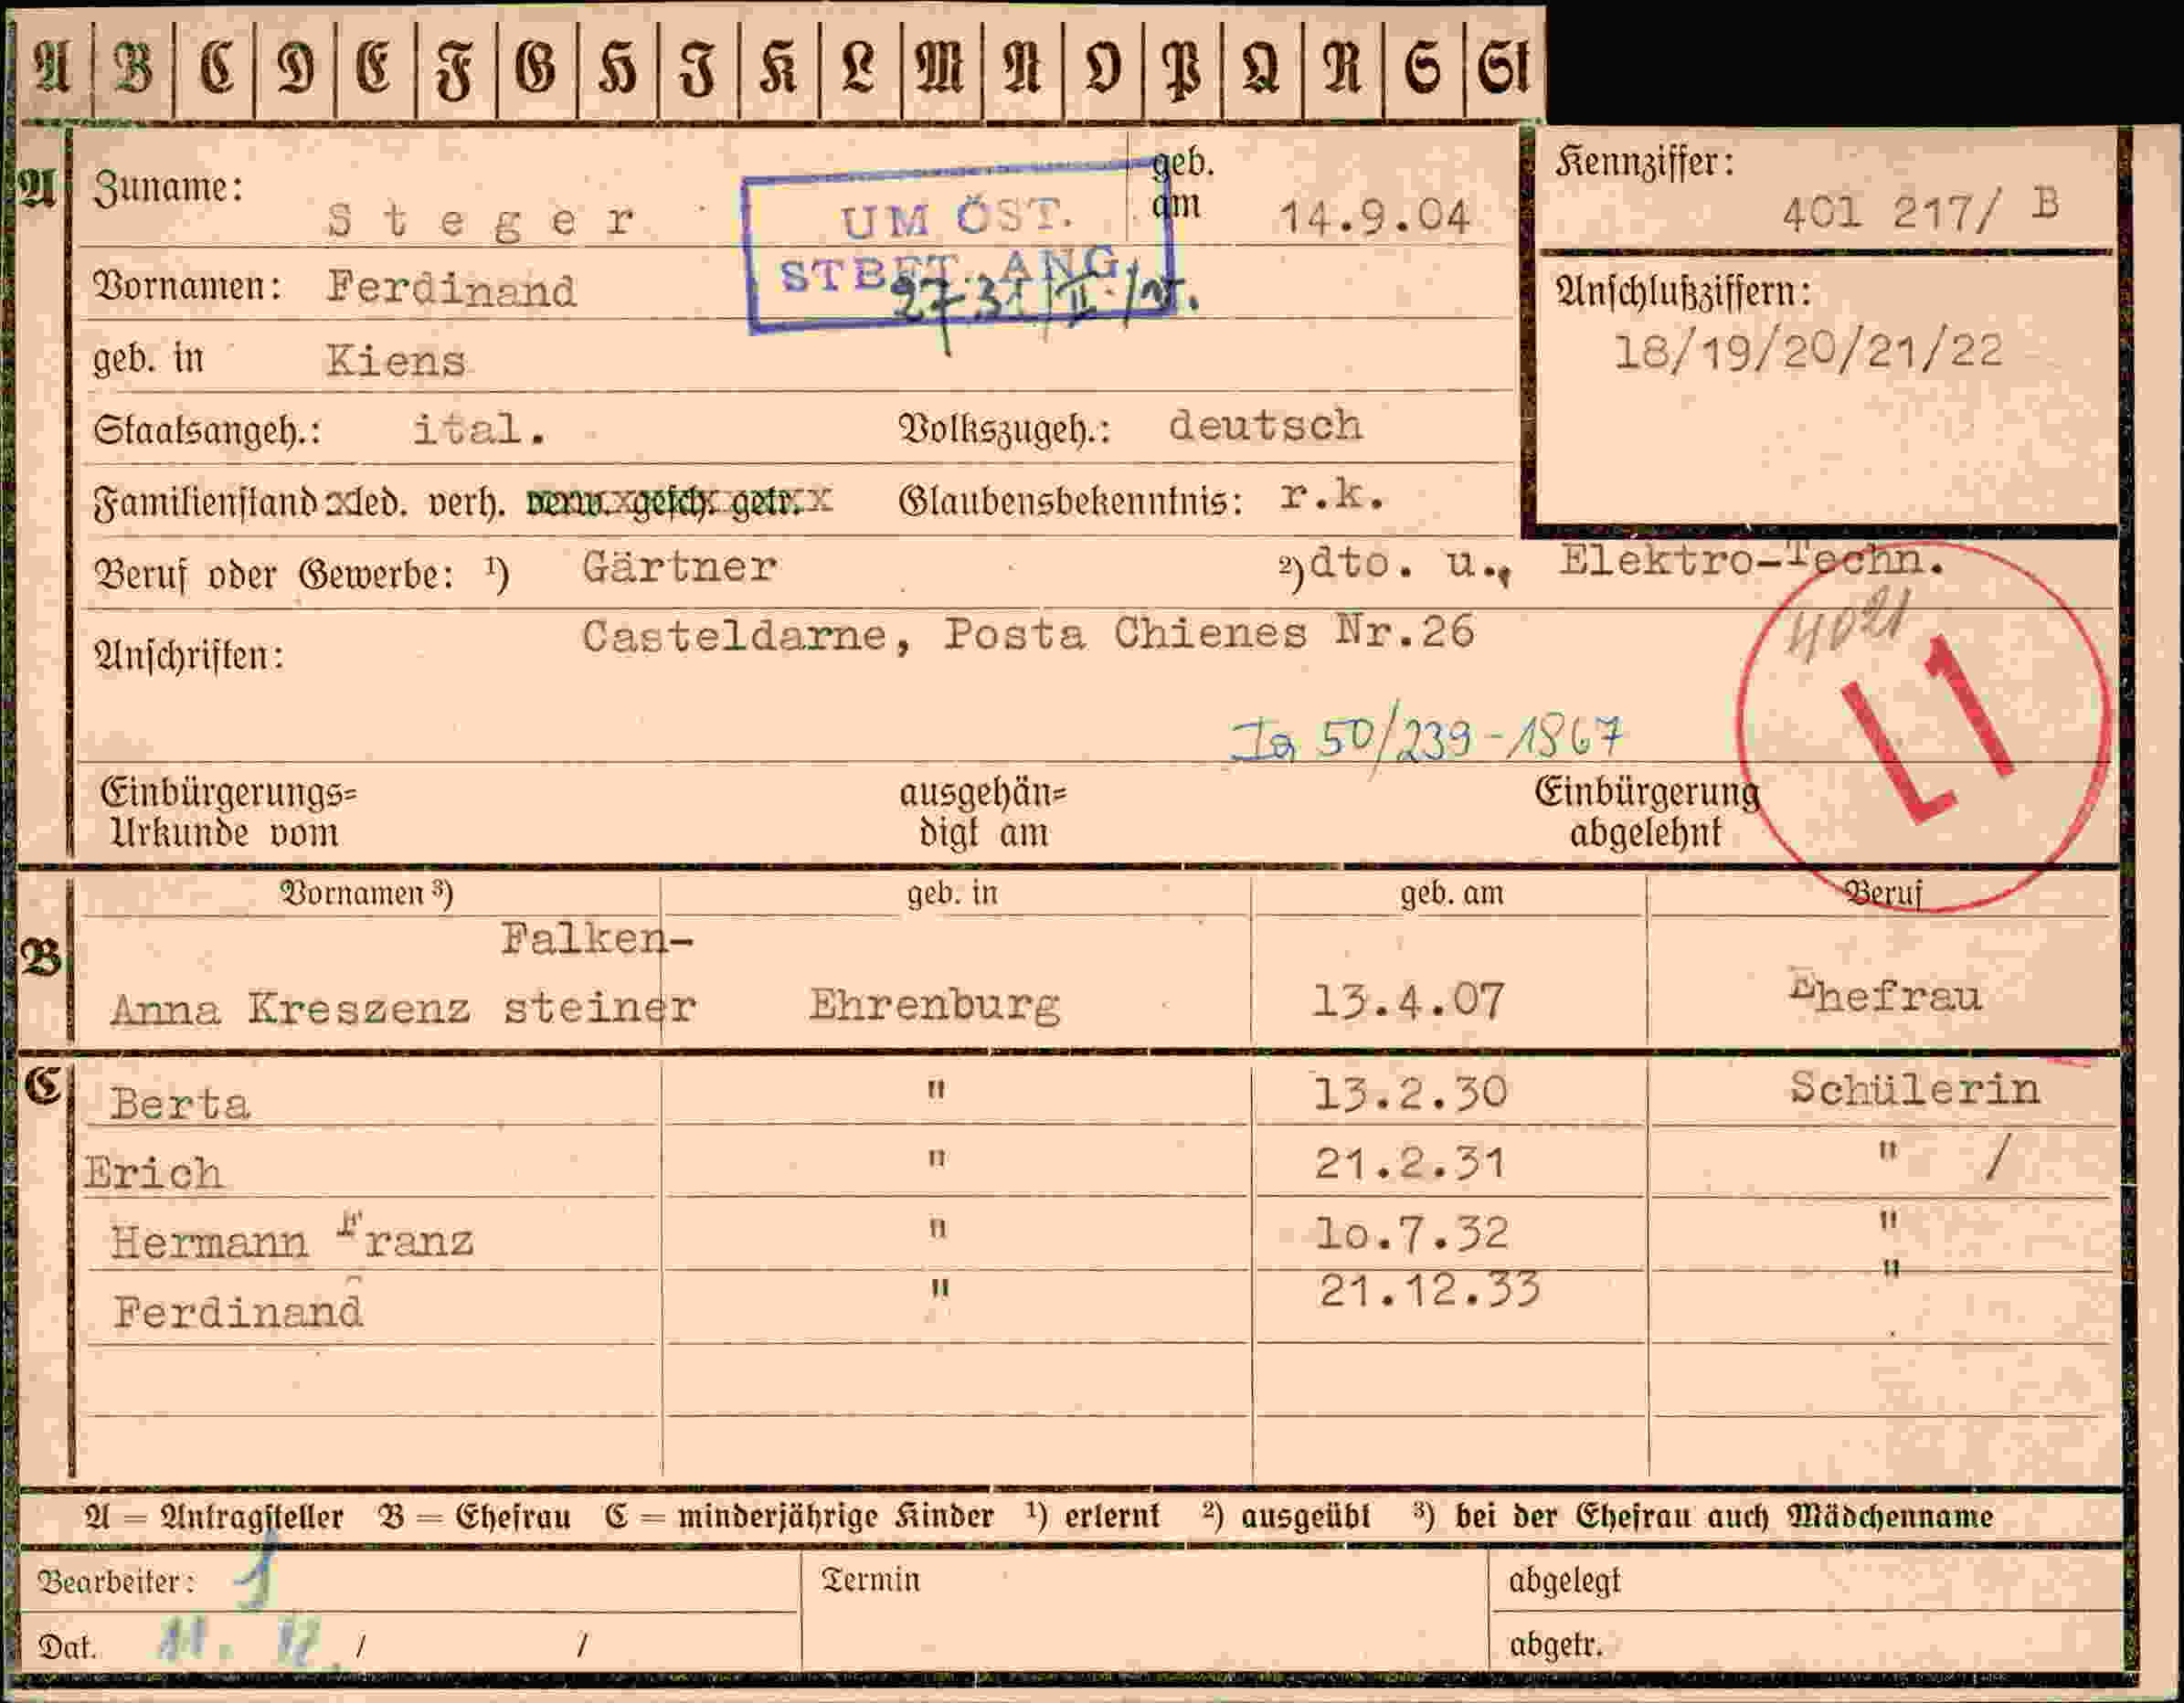 A B C D E F G H I K L M N O P Q R S St
A Zuname: Steger geb. am 14.9.04 Kennziffer: 401 217/ B
UM ÖST.
STBET. ANG.
Vornamen: Ferdinand Anschlußziffern:
18/19/20/21/22
geb. in Kiens
Staatsangeh.: ital. Volkszugeh.: deutsch
Familienstand xled. verh. verw.xgesch. getr.x Glaubensbekenntnis: r.k.
Beruf oder Gewerbe: 1) Gärtner 2) dto. u., Elektro-Techn.
Anschriften: Casteldarne, Posta Chienes Nr.26
4021
L1
Ia 50/239-1867
Einbürgerungs= ausgehän= Einbürgerung
Urkunde vom digt am abgelehnt
Vornamen 3) geb. in geb. am Beruf
Falken-
B Anna Kreszenz steiner Ehrenburg 13.4.07 Ehefrau
C Berta " 13.2.30 Schülerin
Erich " 21.2.31 " /
Hermann Franz " lo.7.32 "
Ferdinand " 21.12.33 "
A = Antragsteller B = Ehefrau C = minderjährige Kinder 1) erlernt 2) ausgeübt 3) bei der Ehefrau auch Mädchenname
Bearbeiter: Termin abgelegt
Dat. 11. 12. / / abgetr.